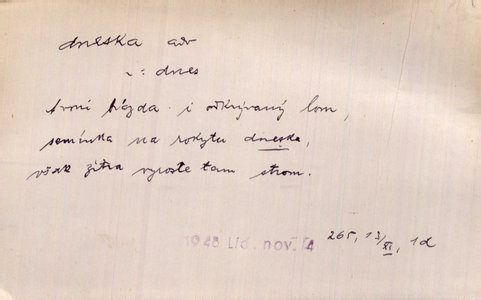 dneska adv
v: dnes
hvízda i odkrývaný lom,
semínka na rokytu dneska,
však zítra vyroste tam strom.
1948 Lid. nov. 54
265, 13/XI, 1d